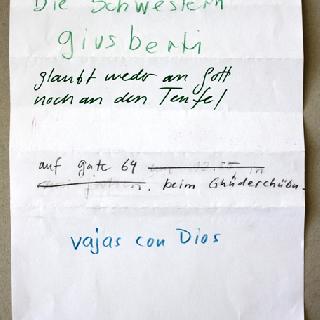 Die Schwestern
giusberti
glaubt weder an Gott
noch an den Teufel
auf gate 64
beim
vajas con Dios